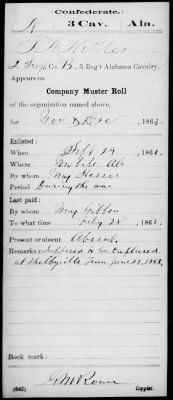 Confederate.
N 3 Cav. Ala.
2 Serg, Co. B, 3 Reg't Alabama Cavalry.
Appears on
Company Muster Roll
of the organization named above,
for Nov & Dec, 1863.
Enlisted:
When Sept 29, 1861.
Where Mobile Ala
By whom Maj Hessee
Period During the war
Last paid:
By whom Maj Gibbon
To what time Feby 28, 1863.
Present or absent Absent.
Remarks: Supposed to be captured
at Shelbyville Tenn, June 27, 1863.
Book mark:
(642) Copyist.